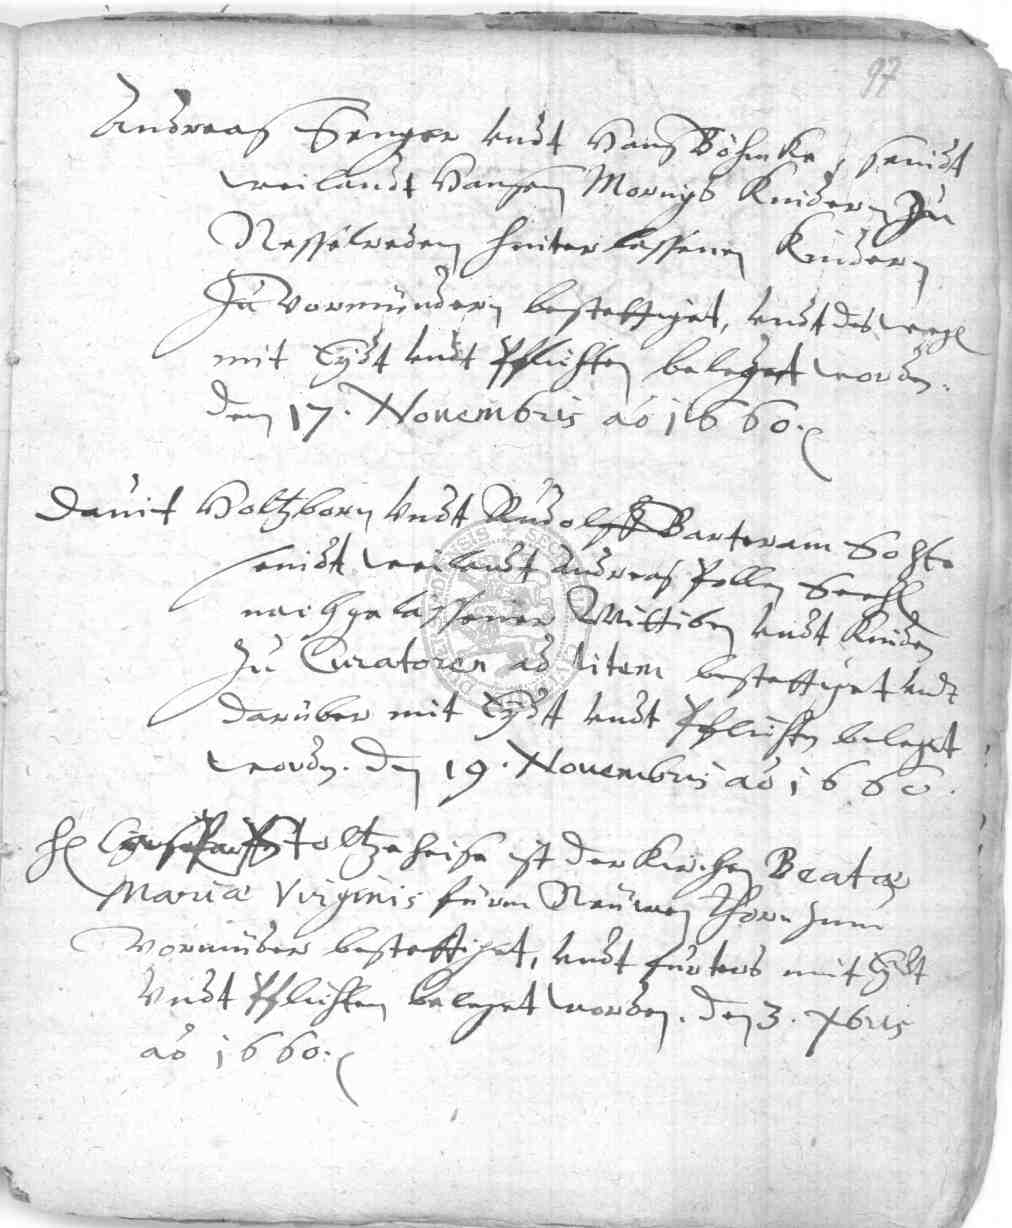 97
Andreas Senger undt Hans Böhmke, seindt
weilandt Hansen Kindern zu
Nesselreden hinterlassenen Kindern
zu Vormündern bestettiget, undt deswegen
mit Eydt undt Pflichten beleget worden.
den 17. Novembris aō 1660.
David Holtzborn undt Rudolff Barteram
seindt weilandt Andreas Seehl
nachgelassener Wittiben undt Kinder
zu Curatoren ad litem bestettiget undt
darüber mit Eydt undt Pflichten beleget
worden. den 19. Novembris aō 1660.
H Stoltzeheise ist der Kirchen Beatae
Mariæ Virginis fürm Neuwen Thore zum
Vormünder bestettiget, undt mit Eydt
undt Pflichten beleget worden. den 3. Xbris
aō 1660.